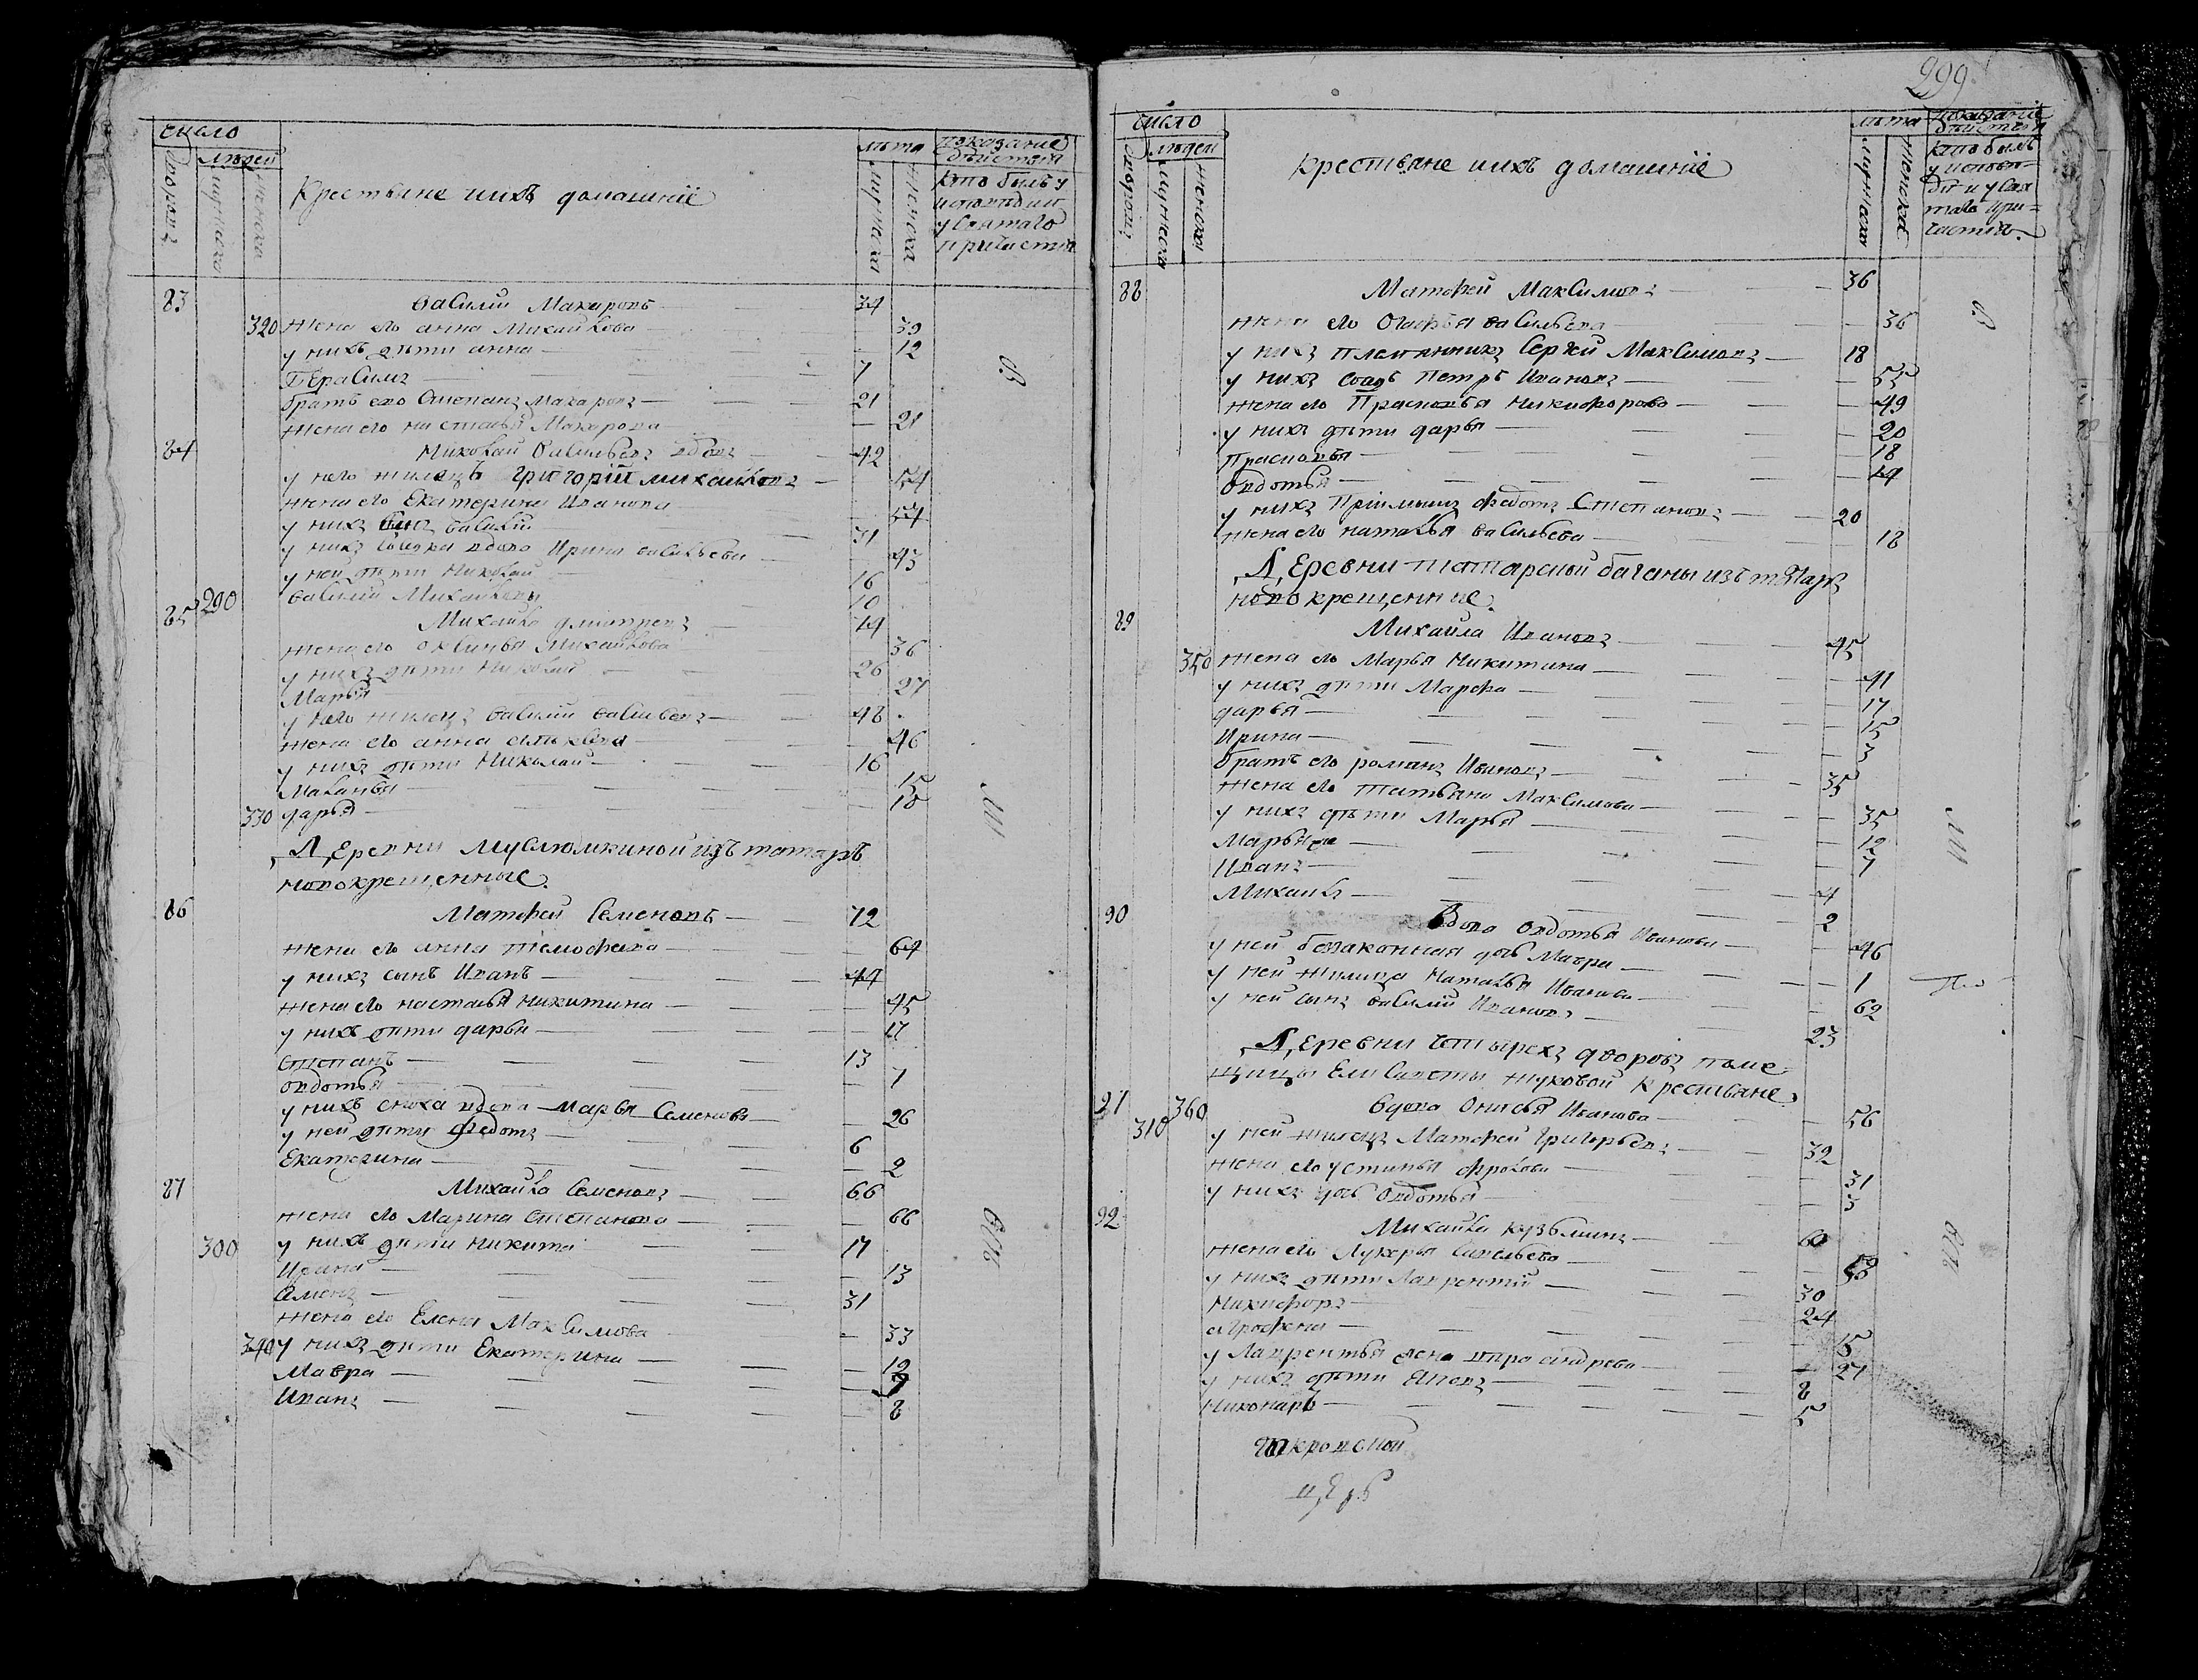 число
людей
дворовъ
мужеска
женска
Крестьяне иихъ домашнїе
лѣта
мужеска
женска
показанїе
дѣйствїя
кто былъ у
исповѣди и
у Святаго
причастїя
83
Василий Макаровъ 34
320 жена его анна Михайлова 39
у нихъ дѣти анна 12
Герасимъ 7
братъ его Степанъ Макаровъ 21
жена его настасья Макарова 21
84 Николай Васильевъ вдовъ 42
у него жилецъ григорїй михайловъ 54
жена его Екатерина Иванова 54
у нихъ сынъ василий 31
у нихъ вдова Ирина васильева 43
у ней дѣти Николай 16
290 василий 10
85 Михайла дмитревъ 44
жена его Михайлова 36
у нихъ дѣти Николай 26
Марья 27
у него жилецъ василий васильевъ 48
жена его анна 46
у нихъ дѣти Николай 16
Маланья 15
330 дарья 10
Деревни Муслюмкиной изъ татаръ
новокрещенные
86 Матфей Семеновъ 72
жена его анна тимофеева 64
у нихъ сынъ Иванъ 44
жена его настасья никитина 45
у нихъ дѣти дарья 17
Степанъ 13
овдотья 7
у нихъ сноха вдова Марья Семенова 26
у ней дѣти Федотъ 6
Екатерина 2
87 Михайла Семеновъ 66
жена его Марина Степанова 66
300 у нихъ дѣти никита 17
Ирина 13
Семенъ 31
жена его Елена Максимова 33
340 у нихъ дѣти Екатерина 12
Мавра 9
Иванъ 8
299
число
людей
дворовъ
мужеска
женска
крестьяне иихъ домашнїе
лѣта
мужеска
женска
показанїе
дѣйствїя
кто былъ
у исповѣ=
ди и у Свя
таго при=
частїя.
88 Матфей Максимовъ 36
жена его Огафья васильева 36
у нихъ племянникъ Сергей Максимовъ 18
у нихъ Петръ Ивановъ 55
жена его Прасковья Никифорова 49
у нихъ дѣти дарья 20
Прасковья 18
Овдотья 14
у нихъ Прїимышъ Федотъ Степановъ 20
жена его наталья васильева 18
Деревни татарской баганы изъ татаръ
новокрещенные
89 Михайла Ивановъ 45
350 жена его Марья Никитина 41
у нихъ дѣти Марфа 17
дарья 15
Ирина 3
братъ его романъ Ивановъ 35
жена его татьяна Максимова 35
у нихъ дѣти Марья 12
Марья 7
Иванъ 4
Михаилъ 2
90 Вдова Овдотья Иванова 46
у ней безаконная дочь Мавра 1
у ней жилица Наталья Иванова 62
у ней сынъ василий Ивановъ 23
Деревни четырехъ дворовъ поме
щицы Елисаветы Жуковой Крестьяне
91 360 вдова Онисья Иванова 56
310 у ней жилецъ Матфей Григорьевъ 32
жена его устинья фролова 31
у нихъ дочь Овдотья 3
92 Михайла кузьминъ 60
жена его Лукерья Савельева 58
у нихъ дѣти Лаврентїй 30
Никифоръ 24
аграфена 15
у Лаврентья жена андреева 27
у нихъ дѣти 8
Никонаръ 5
Покровской